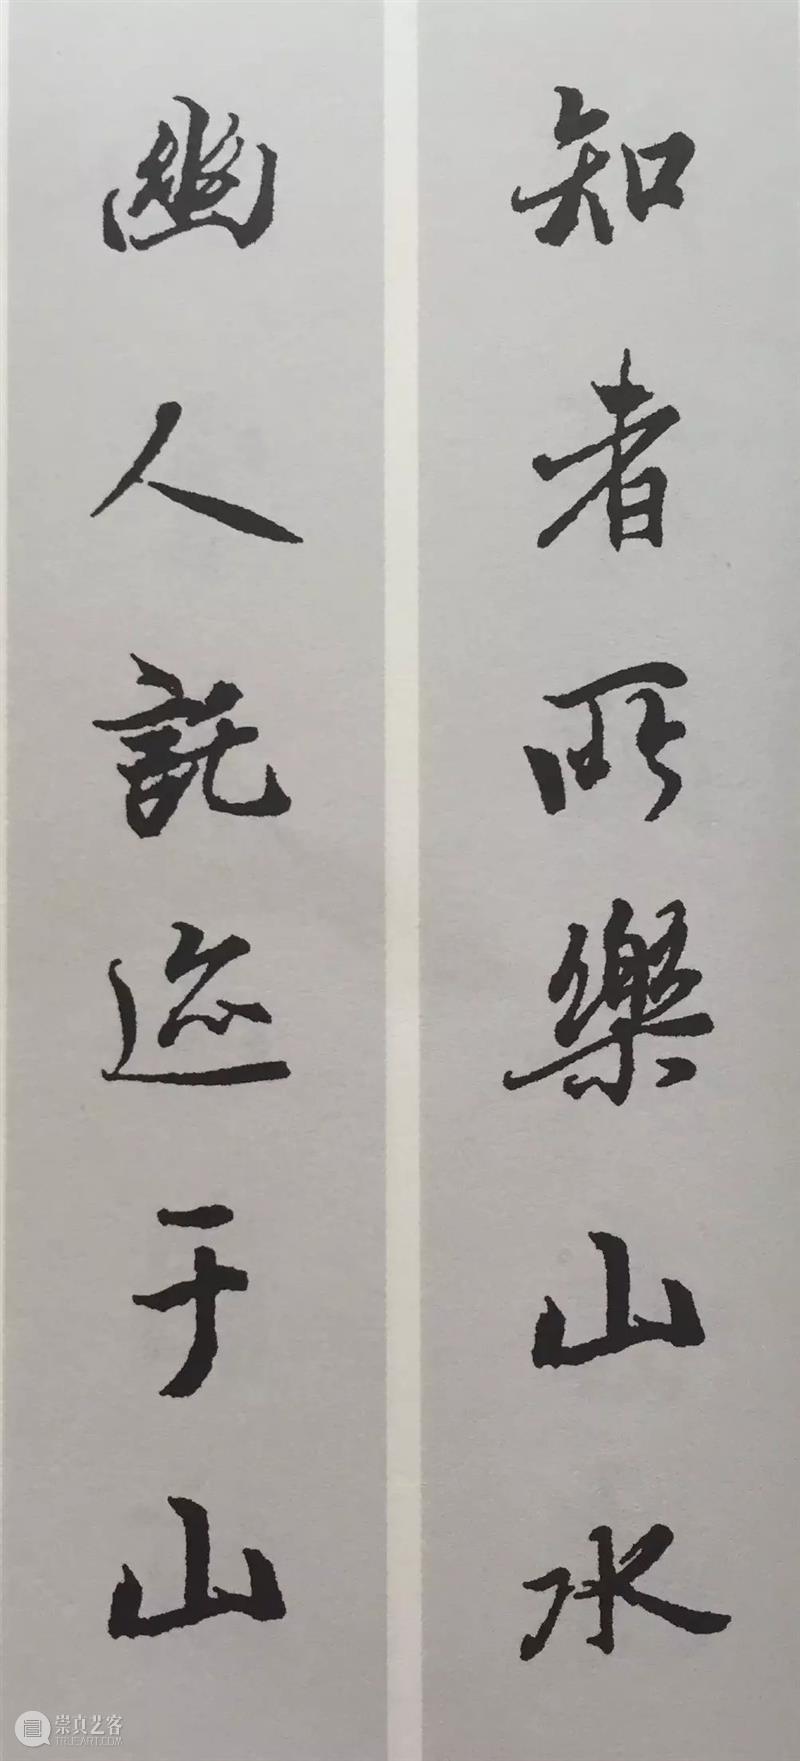 知者所樂山水
幽人託迹于山
崇真艺客
TRUEART.COM